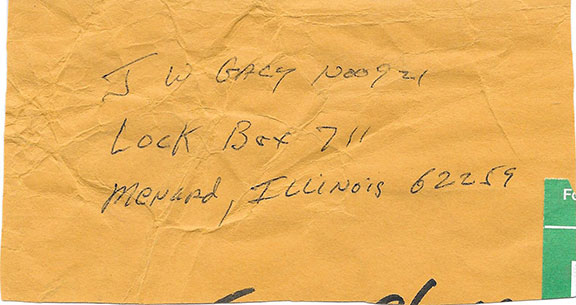 J W GACY N00921
Lock Box 711
Menard, ILLINois 62259
Fo